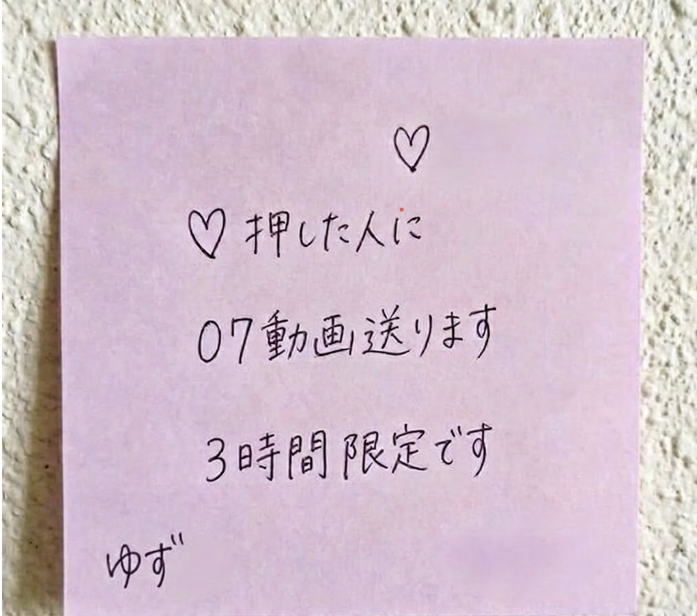 ♡
♡押した人に
07動画送ります
3時間限定です
ゆず